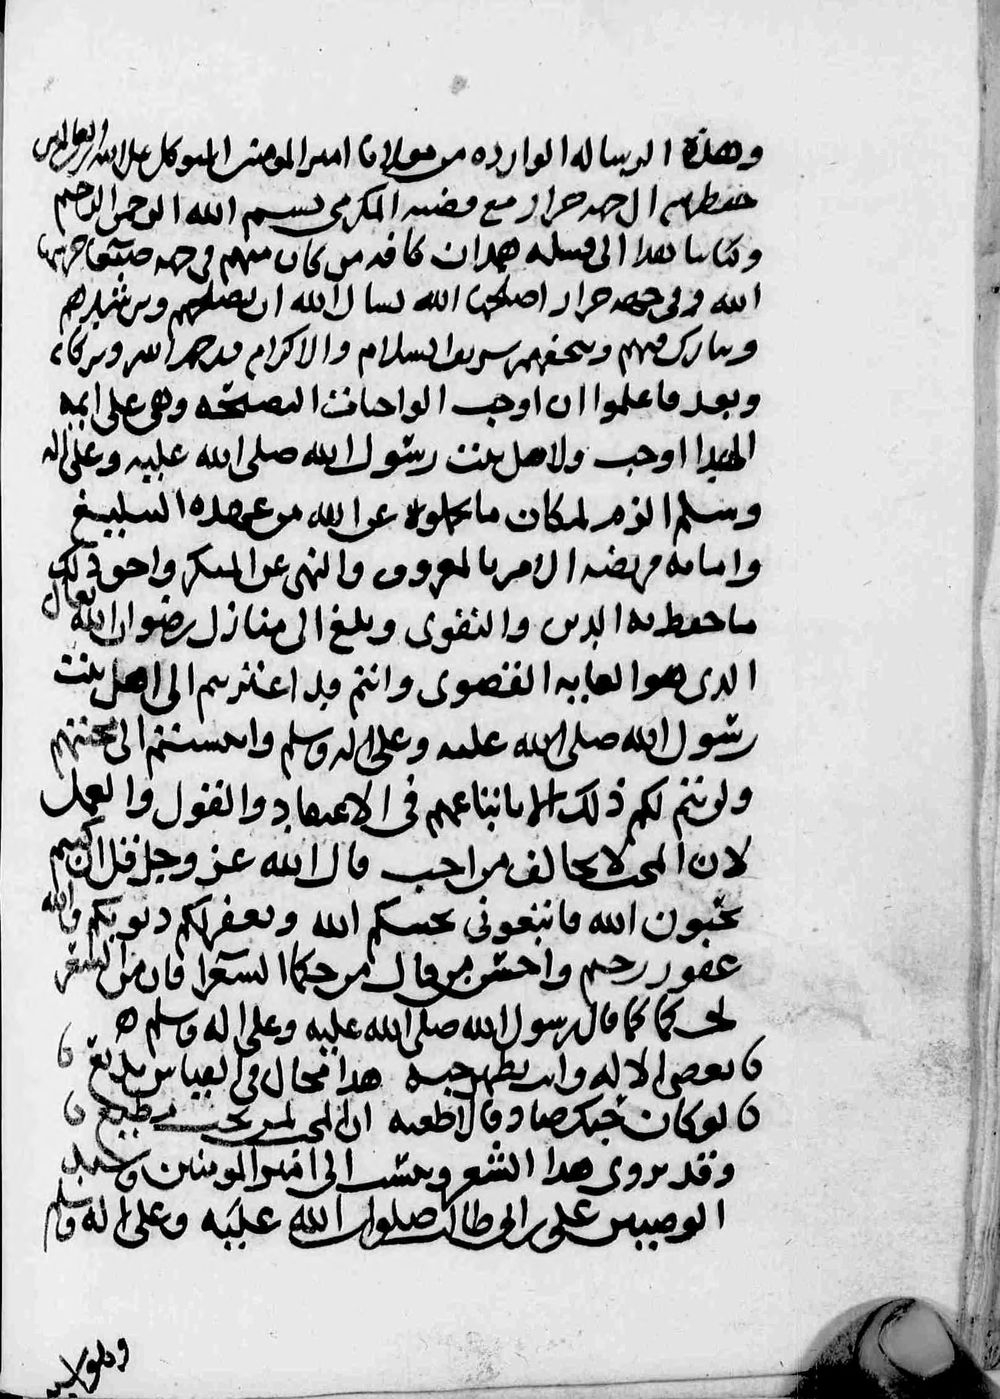 وهذه الرساله الوارده من مولانا امير المومنين المتوكل على الله رب العالمين
حفظه الله الى جهه حراز مع
بسم الله الرحمن الرحيم
وكتابنا هذا الى قبيله همدان كافه من كان منهم في جهه صنعا حرسها
الله وفي جهه حراز اصلحها الله نسال الله ان يصلحهم ويرشدهم
ويبارك فيهم ويتحفهم بشريف السلام والاكرام ورحمه الله وبركاته
وبعد فاعلموا ان اوجب الواجبات النصيحه وهي على ايمه
الهدا اوجب ولاهل بيت رسول الله صلى الله عليه وعلى اله
وسلم الزم لمكان ما تحملوه عن الله من عهده التبليغ
واقامه فريضه الامر بالمعروف والنهي عن المنكر واحق ذلك
ما حفظ به الدين والتقوى وبلغ الى منازل رضوان الله تعالى
الذي هو الغايه القصوى وانتم قد اعتزيتم الى اهل بيت
رسول الله صلى الله عليه وعلى اله وسلم وانتسبتم الى محبتهم
ولن يتم لكم ذلك الا باتباعهم في الاعتقاد والقول والعمل
لان المحب لا يخالف من احب قال الله عز وجل قل ان كنتم
تحبون الله فاتبعوني يحببكم الله ويغفر لكم ذنوبكم والله
غفور رحيم واحسن من قال من حكما الشعرا فان من الشعر
لحكما كما قال رسول الله صلى الله عليه وعلى اله وسلم
تعصي الاله وانت تظهر حبه هذا محال في القياس بديع
لو كان حبك صادقا لاطعته ان المحب لمن يحب مطيع
وقد يروى هذا الشعر وينسب الى امير المومنين وسيد
الوصيين علي بن ابي طالب صلوات الله عليه وعلى اله وسلم